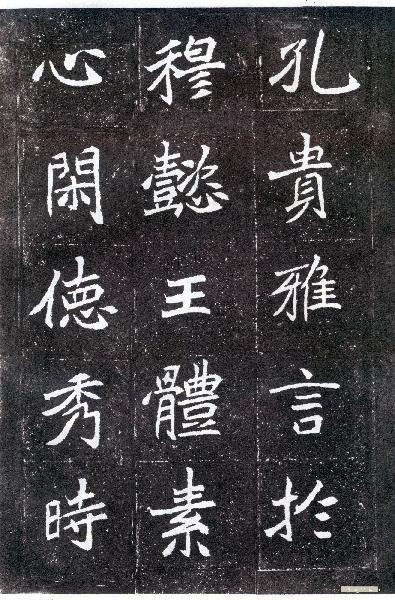 孔貴雅言於
穆懿王體素
心閑德秀時